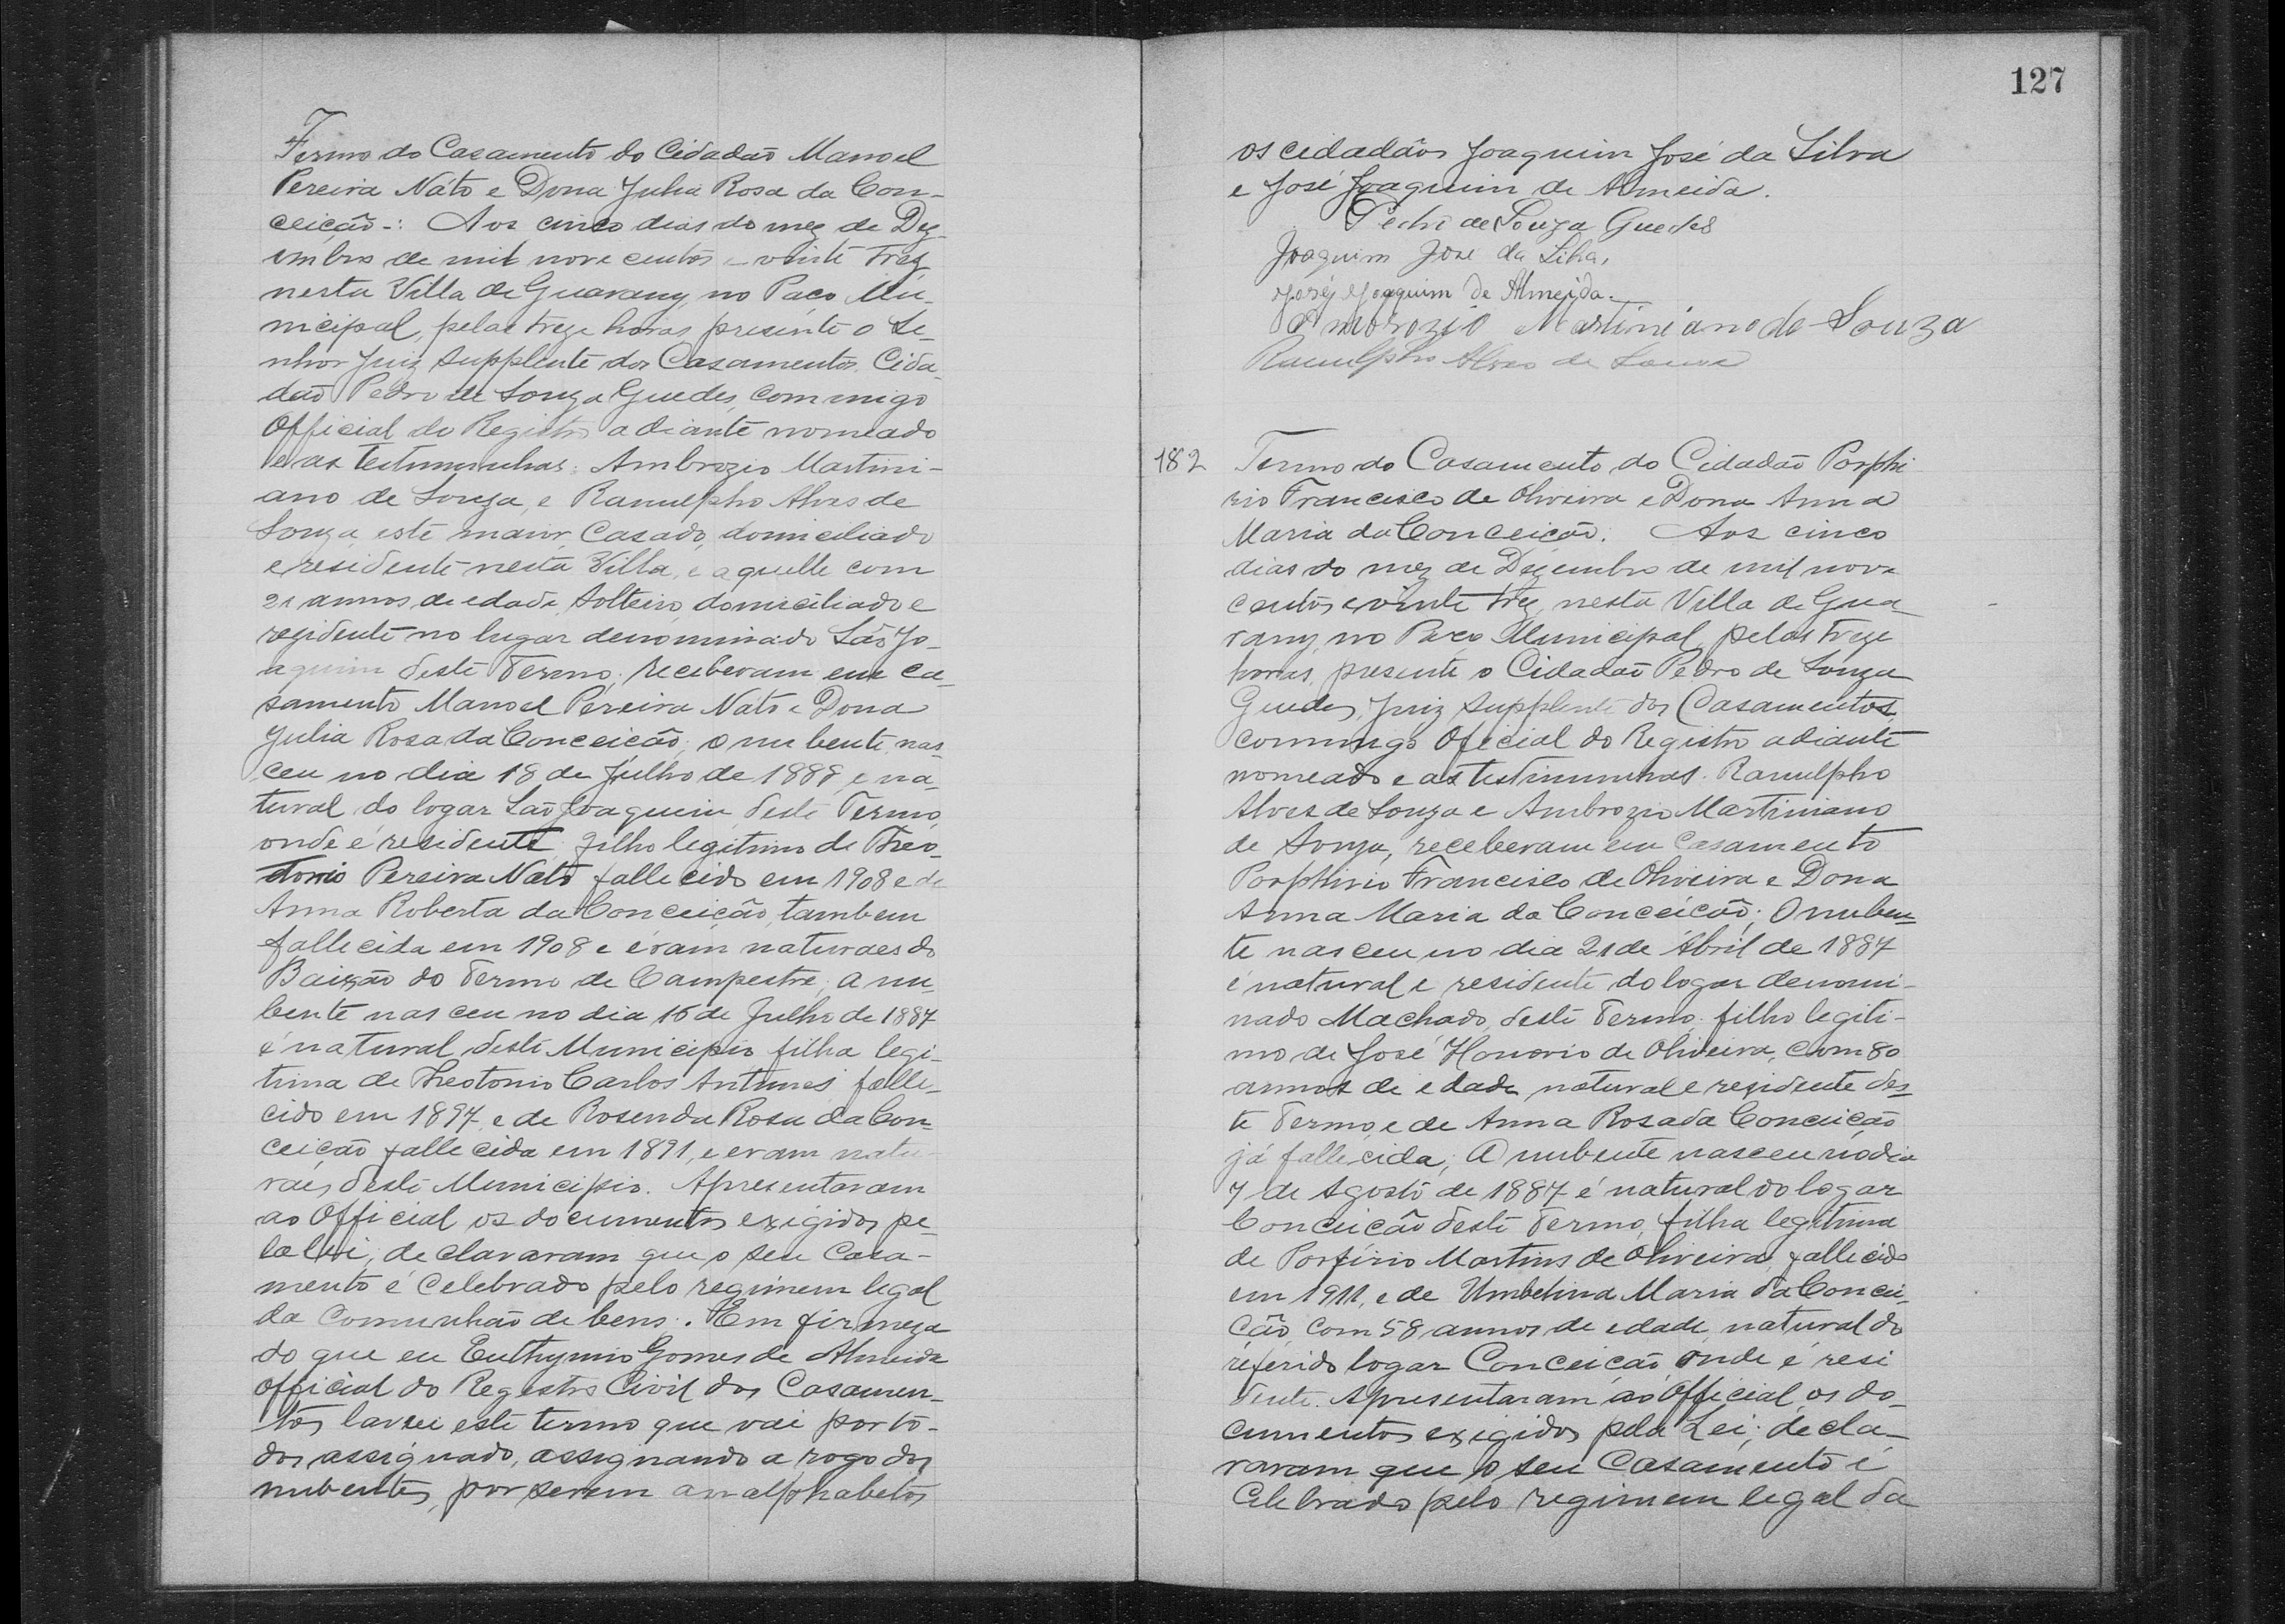 Termo do Casamento do Cidadão Manoel
Pereira Náto e Dona Julia Rosa da Con-
ceição-: Aos cinco dias do mez de Dez-
embro de mil nove centos e vinte trez
nesta Villa de Guarany, no Paço Mu-
nicipal, pelas treze horas presente o Se-
nhor Juiz Supplente dos Casamentos, Cida-
dão Pedro de Souza Guedes, commigo
Official do Registro adiante nomeado
e as testimunhas: Ambrozio Martini-
ano de Souza, e Ranulpho Alves de
Souza este maior, Casado, domiciliado
e residente nesta Villa, e aquelle com
21 annos de edade, Solteiro, domiciliado e
rezidente no lugar denominado São Jo-
aquim deste Termo; receberam em ca-
samento Manoel Pereira Nato e Dona
Julia Rosa da Conceicão; o nubente nas
ceu no dia 18 de Julho de 1888, e na-
tural do logar São Joaquim deste Termo,
onde é residente, filho legitimo de Theo-
tonio Pereira Nato fallecido em 1908 e de
Anna Roberta da Conceição, tambem
fallecida em 1908 e éram naturaes do
Baixão do Termo de Campestre; a nu-
bente nasceu no dia 15 de Julho de 1887
é natural deste Municipio filha legi-
tima de Theotonio Carlos Antunes falle-
cido em 1897, e de Rosenda Rosa da Con-
ceição fallecida em 1891, e eram natu-
raes deste Municipio. Apresentaram
ao Official os documentos exigidos pe-
la lei, declararam que o seu Casa-
mento é celebrado pelo regimem legal
da Comunhão de bens. Em firmeza
do que eu Euthymio Gomes de Almeida
Official do Registro Civil dos Casamen-
tos lavrei este termo que vai por to-
dos assignado, assignando a rogo dos
nubentes, por serem analphabetos
127
os cidadãos Joaquim José da Silva
e José Joaquim de Almeida.
Pedro de Souza Guedes
Joaquim Jose da Silva,
José Joaquim de Almeida.
Ambrozio Martiniano de Souza
Ranulpho Alves de Souza
182 Termo do Casamento do Cidadão Porphi
rio Francisco de Oliveira e Dona Anna
Maria da Conceicão: Aos cinco
dias do mez de Dezembro de mil nove
centos e vinte trez, nesta Villa de Gua-
rany, no Paço Municipal, pelas treze
horas, presente o Cidadão Pedro de Souza
Guedes, Juiz Supplente dos Casamentos,
commigo Oficial do Registro adiante
nomeado e as testimunhas. Ranulpho
Alves de Souza e Ambrozio Martiniano
de Souza, receberam em Casamento
Porphirio Francisco de Oliveira e Dona
Anna Maria da Conceicão; O nuben-
te nasceu no dia 21 de Abril de 1887
é natural e residente do logar denomi-
nado Machado, deste Termo; filho legiti-
mo de José Honorio de Oliveira, com 80
annos de edade, natural e rezidente des-
te Termo, e de Anna Rosa da Conceição
já fallecida; A nubente nasceu no dia
7 de Agosto de 1887 é natural do logar
Conceicão deste Termo, filha legitima
de Porfirio Martins de Oliveira, fallecido
em 1911, e de Umbelina Maria da Concei-
cão, com 58 annos de edade, natural do
referido logar Conceicão, onde é resi
dente. Apresentaram ao Official os do-
cumentos exigidos pela Lei; decla-
raram que o seu Casamento é
Celebrado pelo regimem legal da